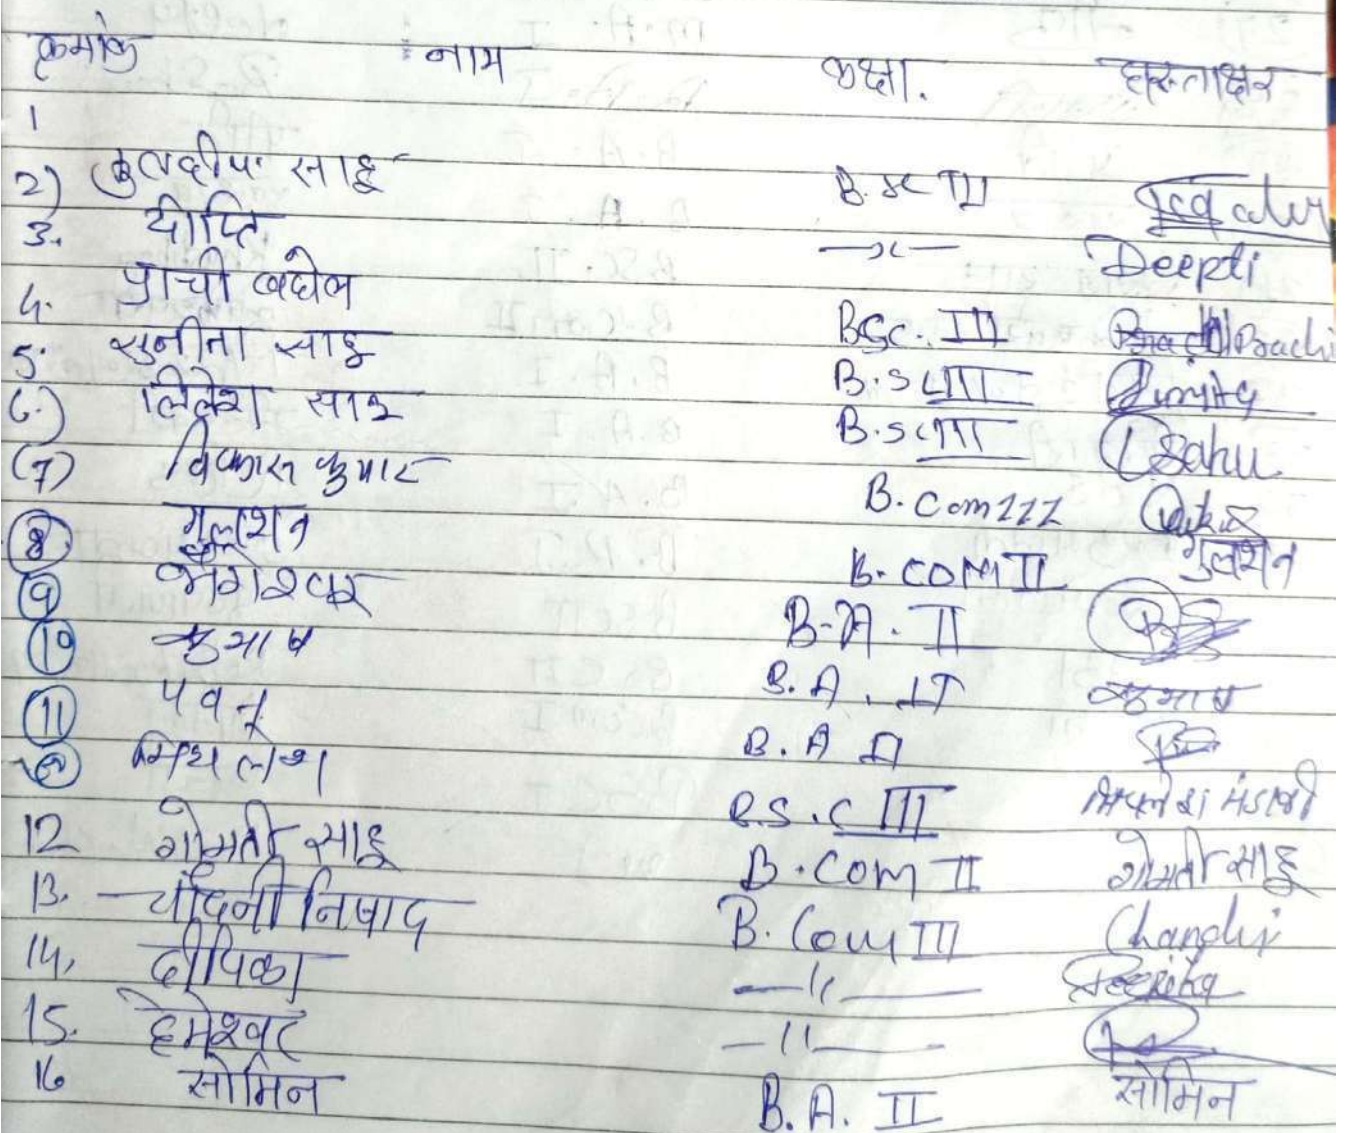 क्रमांक : नाम कक्षा. हस्ताक्षर
1
2) कुलदीप साहू B.sc III
3. दीप्ति —〃— Deepti
4. प्राची बघेल BSc. III Prachi
5. सुनीता साहू B.Sc III Sunita
6.) साहू B.Sc III Sahu
(7) विकास कुमार B.Com III
8 गुलशन B.COM II गुलशन
9 B.A. II
10 B.A. II
11 पवन B.A II
मिथलेश B.S.C III
12 गोमती साहू B.COM II गोमती साहू
13. चाँदनी निषाद B.Com III Chandni
14. दीपिका —〃— Deepika
15. हेमेश्वर —〃—
16 सोमिन B.A. II सोमिन